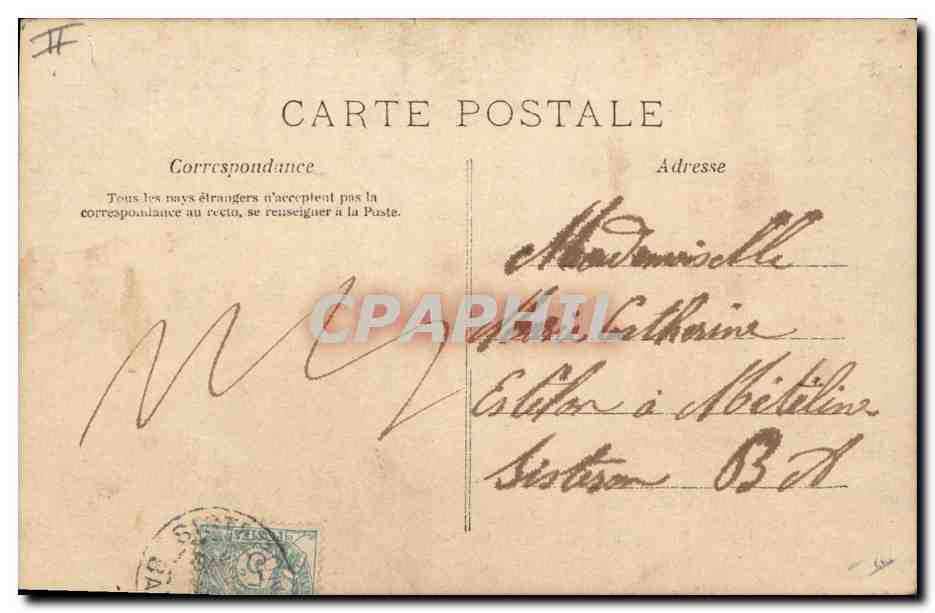 II
CARTE POSTALE
Correspondance
Tous les pays étrangers n'acceptent pas la
correspondance au recto, se renseigner à la Poste.
Adresse
Mademoiselle
Marie Catherine
à
Sisteron B A
CPAPHIL
SISTE
BA
5